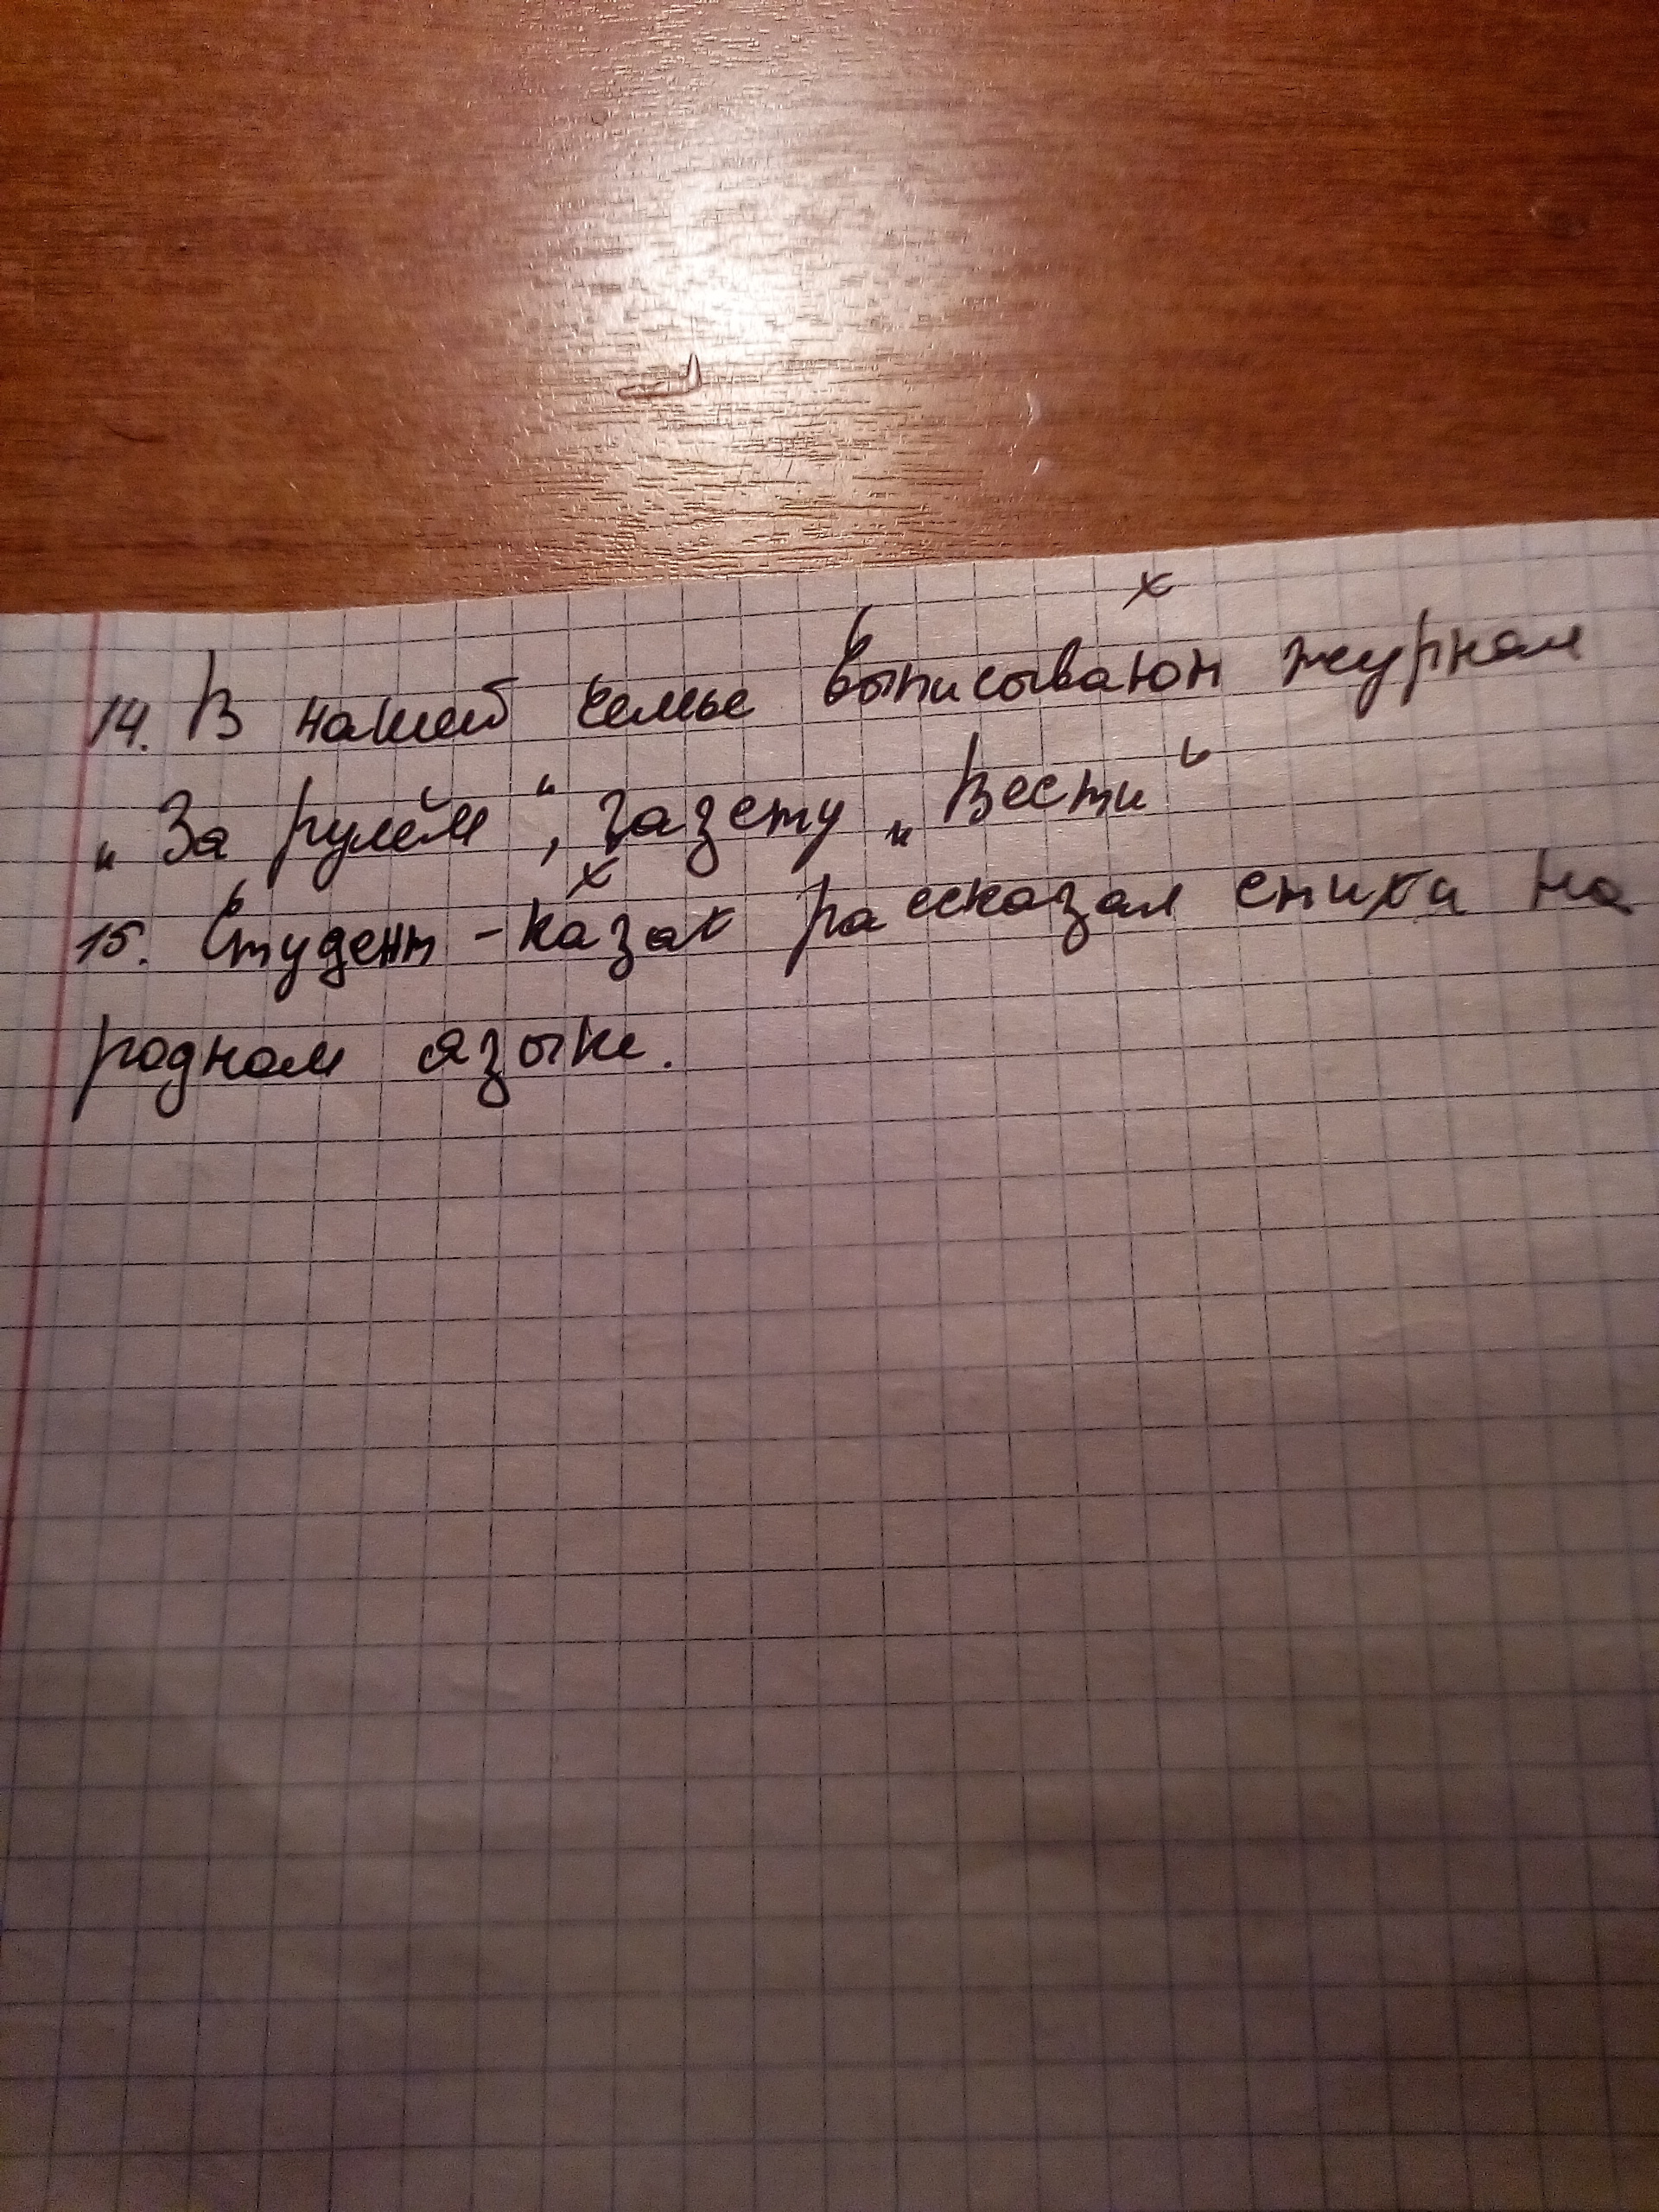 14. В нашей семье выписывают журнал
„За рулём“, газету „Вести“
15. Студент-казах рассказал стихи на
родном языке.